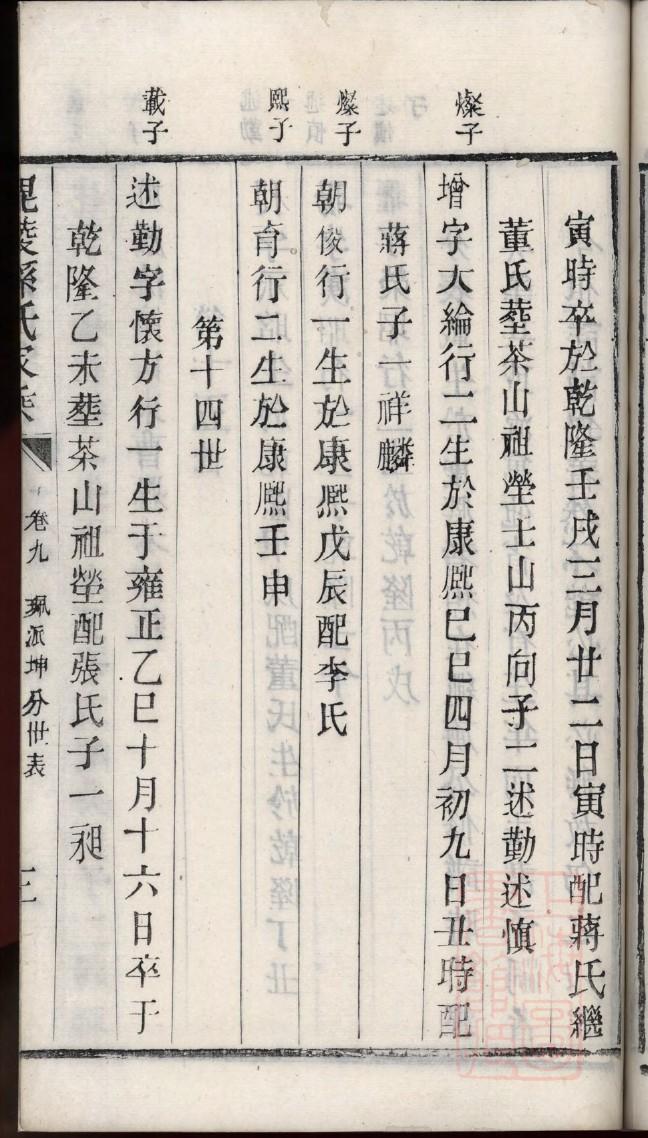 寅時卒於乾隆壬戌三月廿二日寅時配蔣氏繼
董氏塟茶山祖塋士山丙向子二述勤述慎
燦子
增字大綸行二生於康熈已巳四月初九日丑時配
蔣氏子一祥麟
燦子
朝俊行一生於康熈戊辰配李氏
熈子
朝育行二生於康熈壬申
第十四世
載子
述勤字懷方行一生于雍正乙巳十月十六日卒于
乾隆乙未塟茶山祖塋配張氏子一昶
毘陵孫氏家乘
卷九
珮派坤分世表